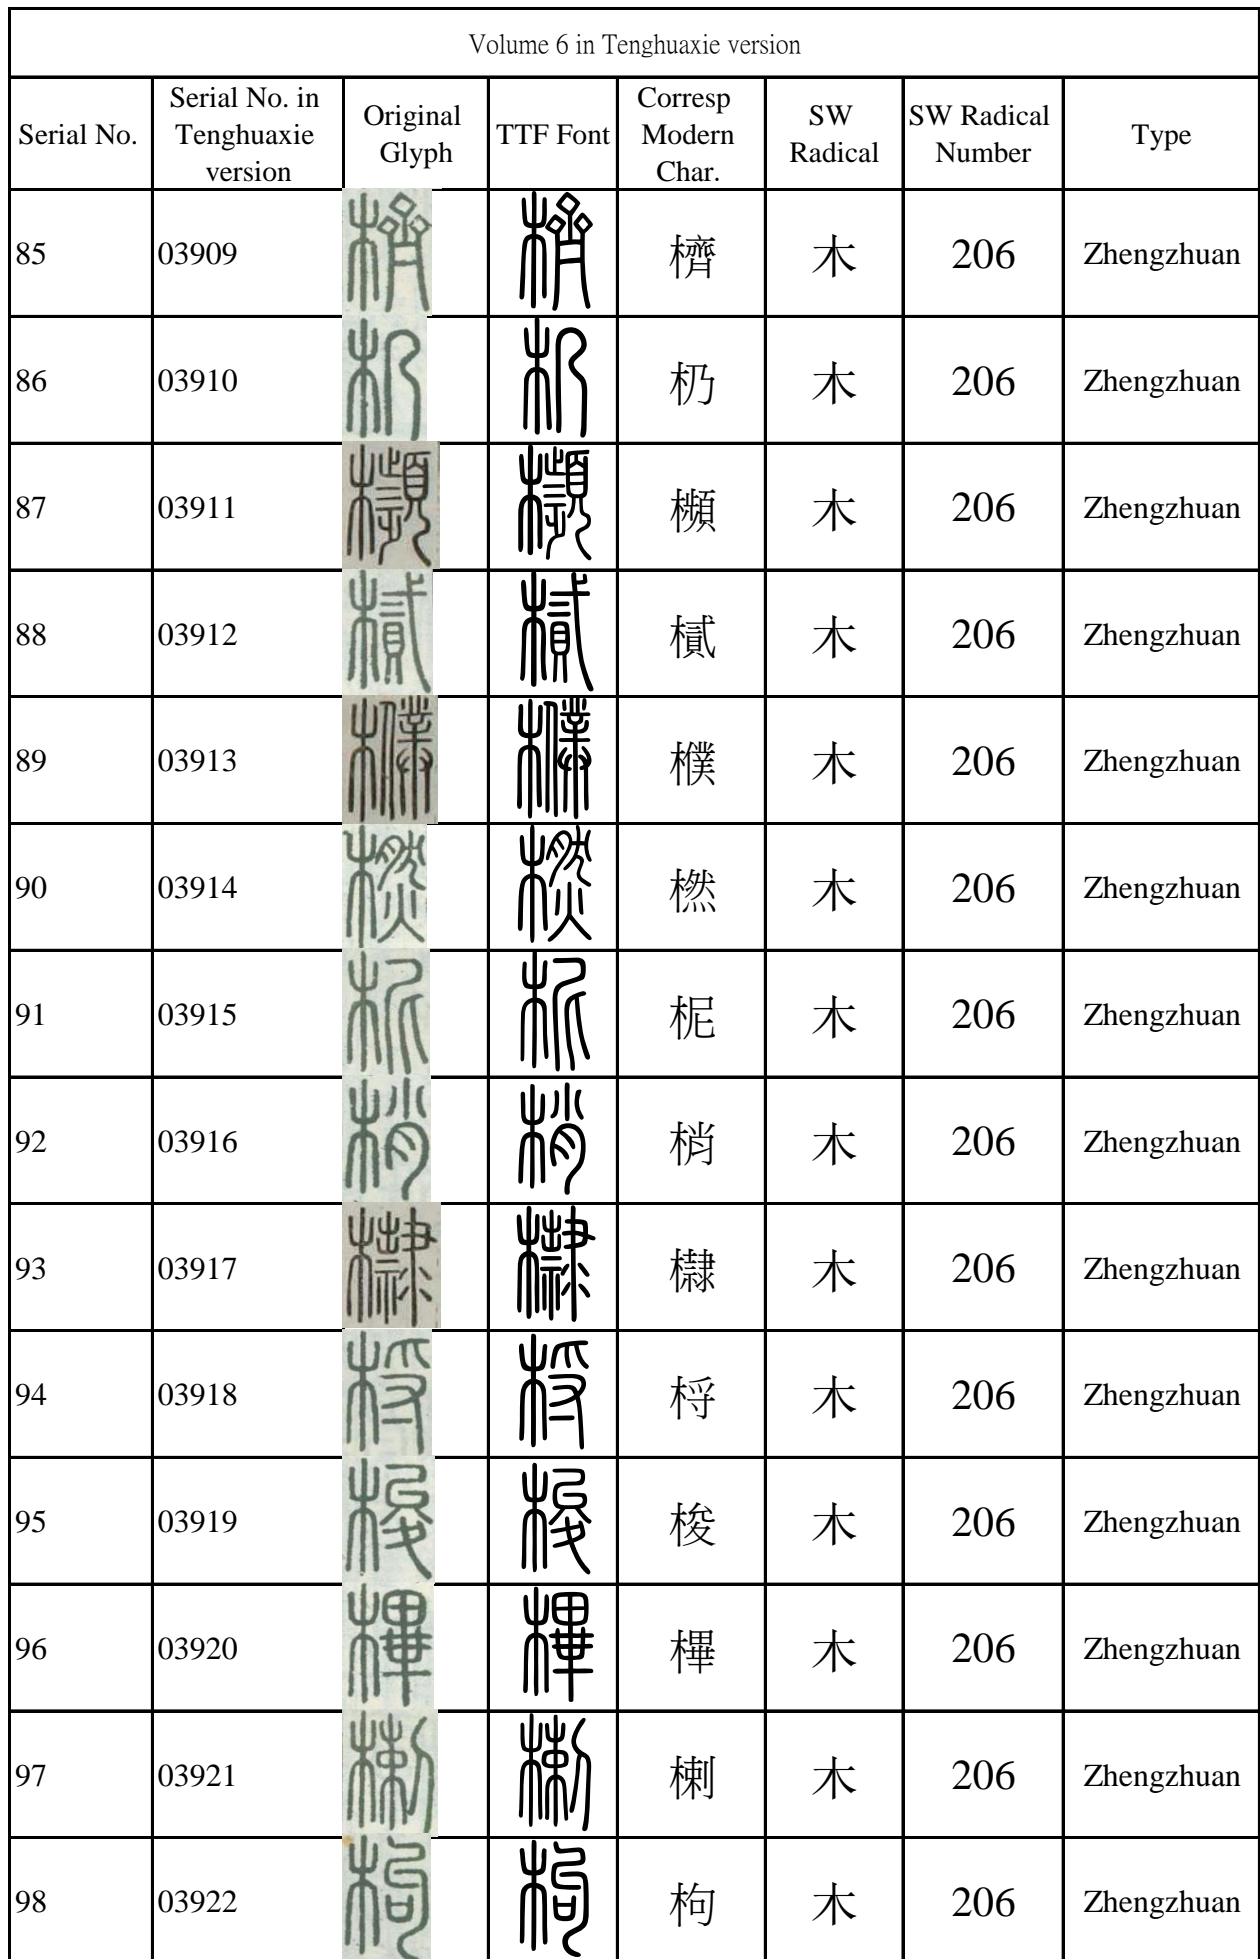 Volume 6 in Tenghuaxie version
Serial No. Serial No. in Tenghuaxie version Original Glyph TTF Font Corresp Modern Char. SW Radical SW Radical Number Type
85 03909 櫅 木 206 Zhengzhuan
86 03910 杒 木 206 Zhengzhuan
87 03911 櫇 木 206 Zhengzhuan
88 03912 樲 木 206 Zhengzhuan
89 03913 樸 木 206 Zhengzhuan
90 03914 橪 木 206 Zhengzhuan
91 03915 柅 木 206 Zhengzhuan
92 03916 梢 木 206 Zhengzhuan
93 03917 木 206 Zhengzhuan
94 03918 桴 木 206 Zhengzhuan
95 03919 梭 木 206 Zhengzhuan
96 03920 樿 木 206 Zhengzhuan
97 03921 楋 木 206 Zhengzhuan
98 03922 枸 木 206 Zhengzhuan